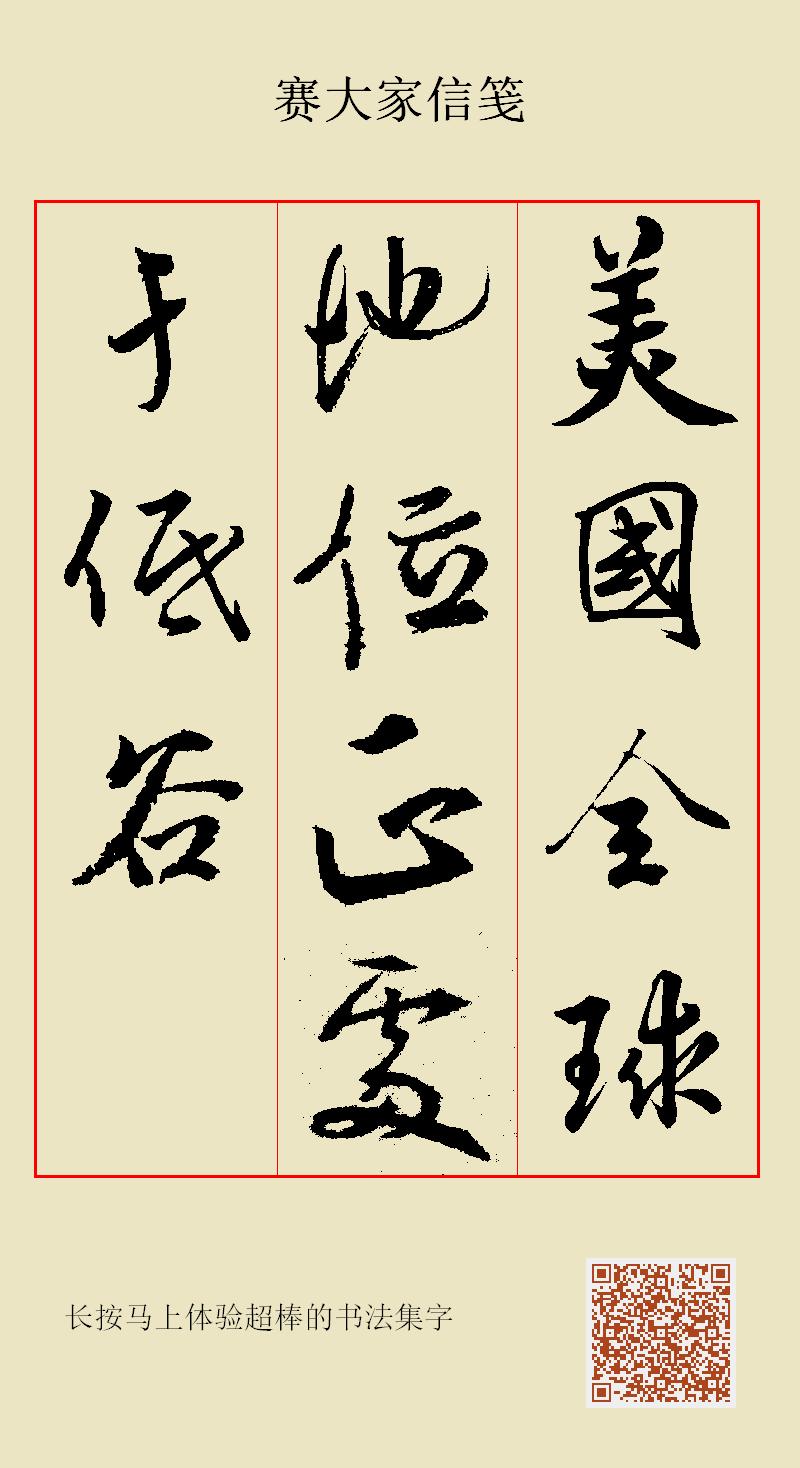 赛大家信笺
美國全球
地位正處
于低谷
长按马上体验超棒的书法集字